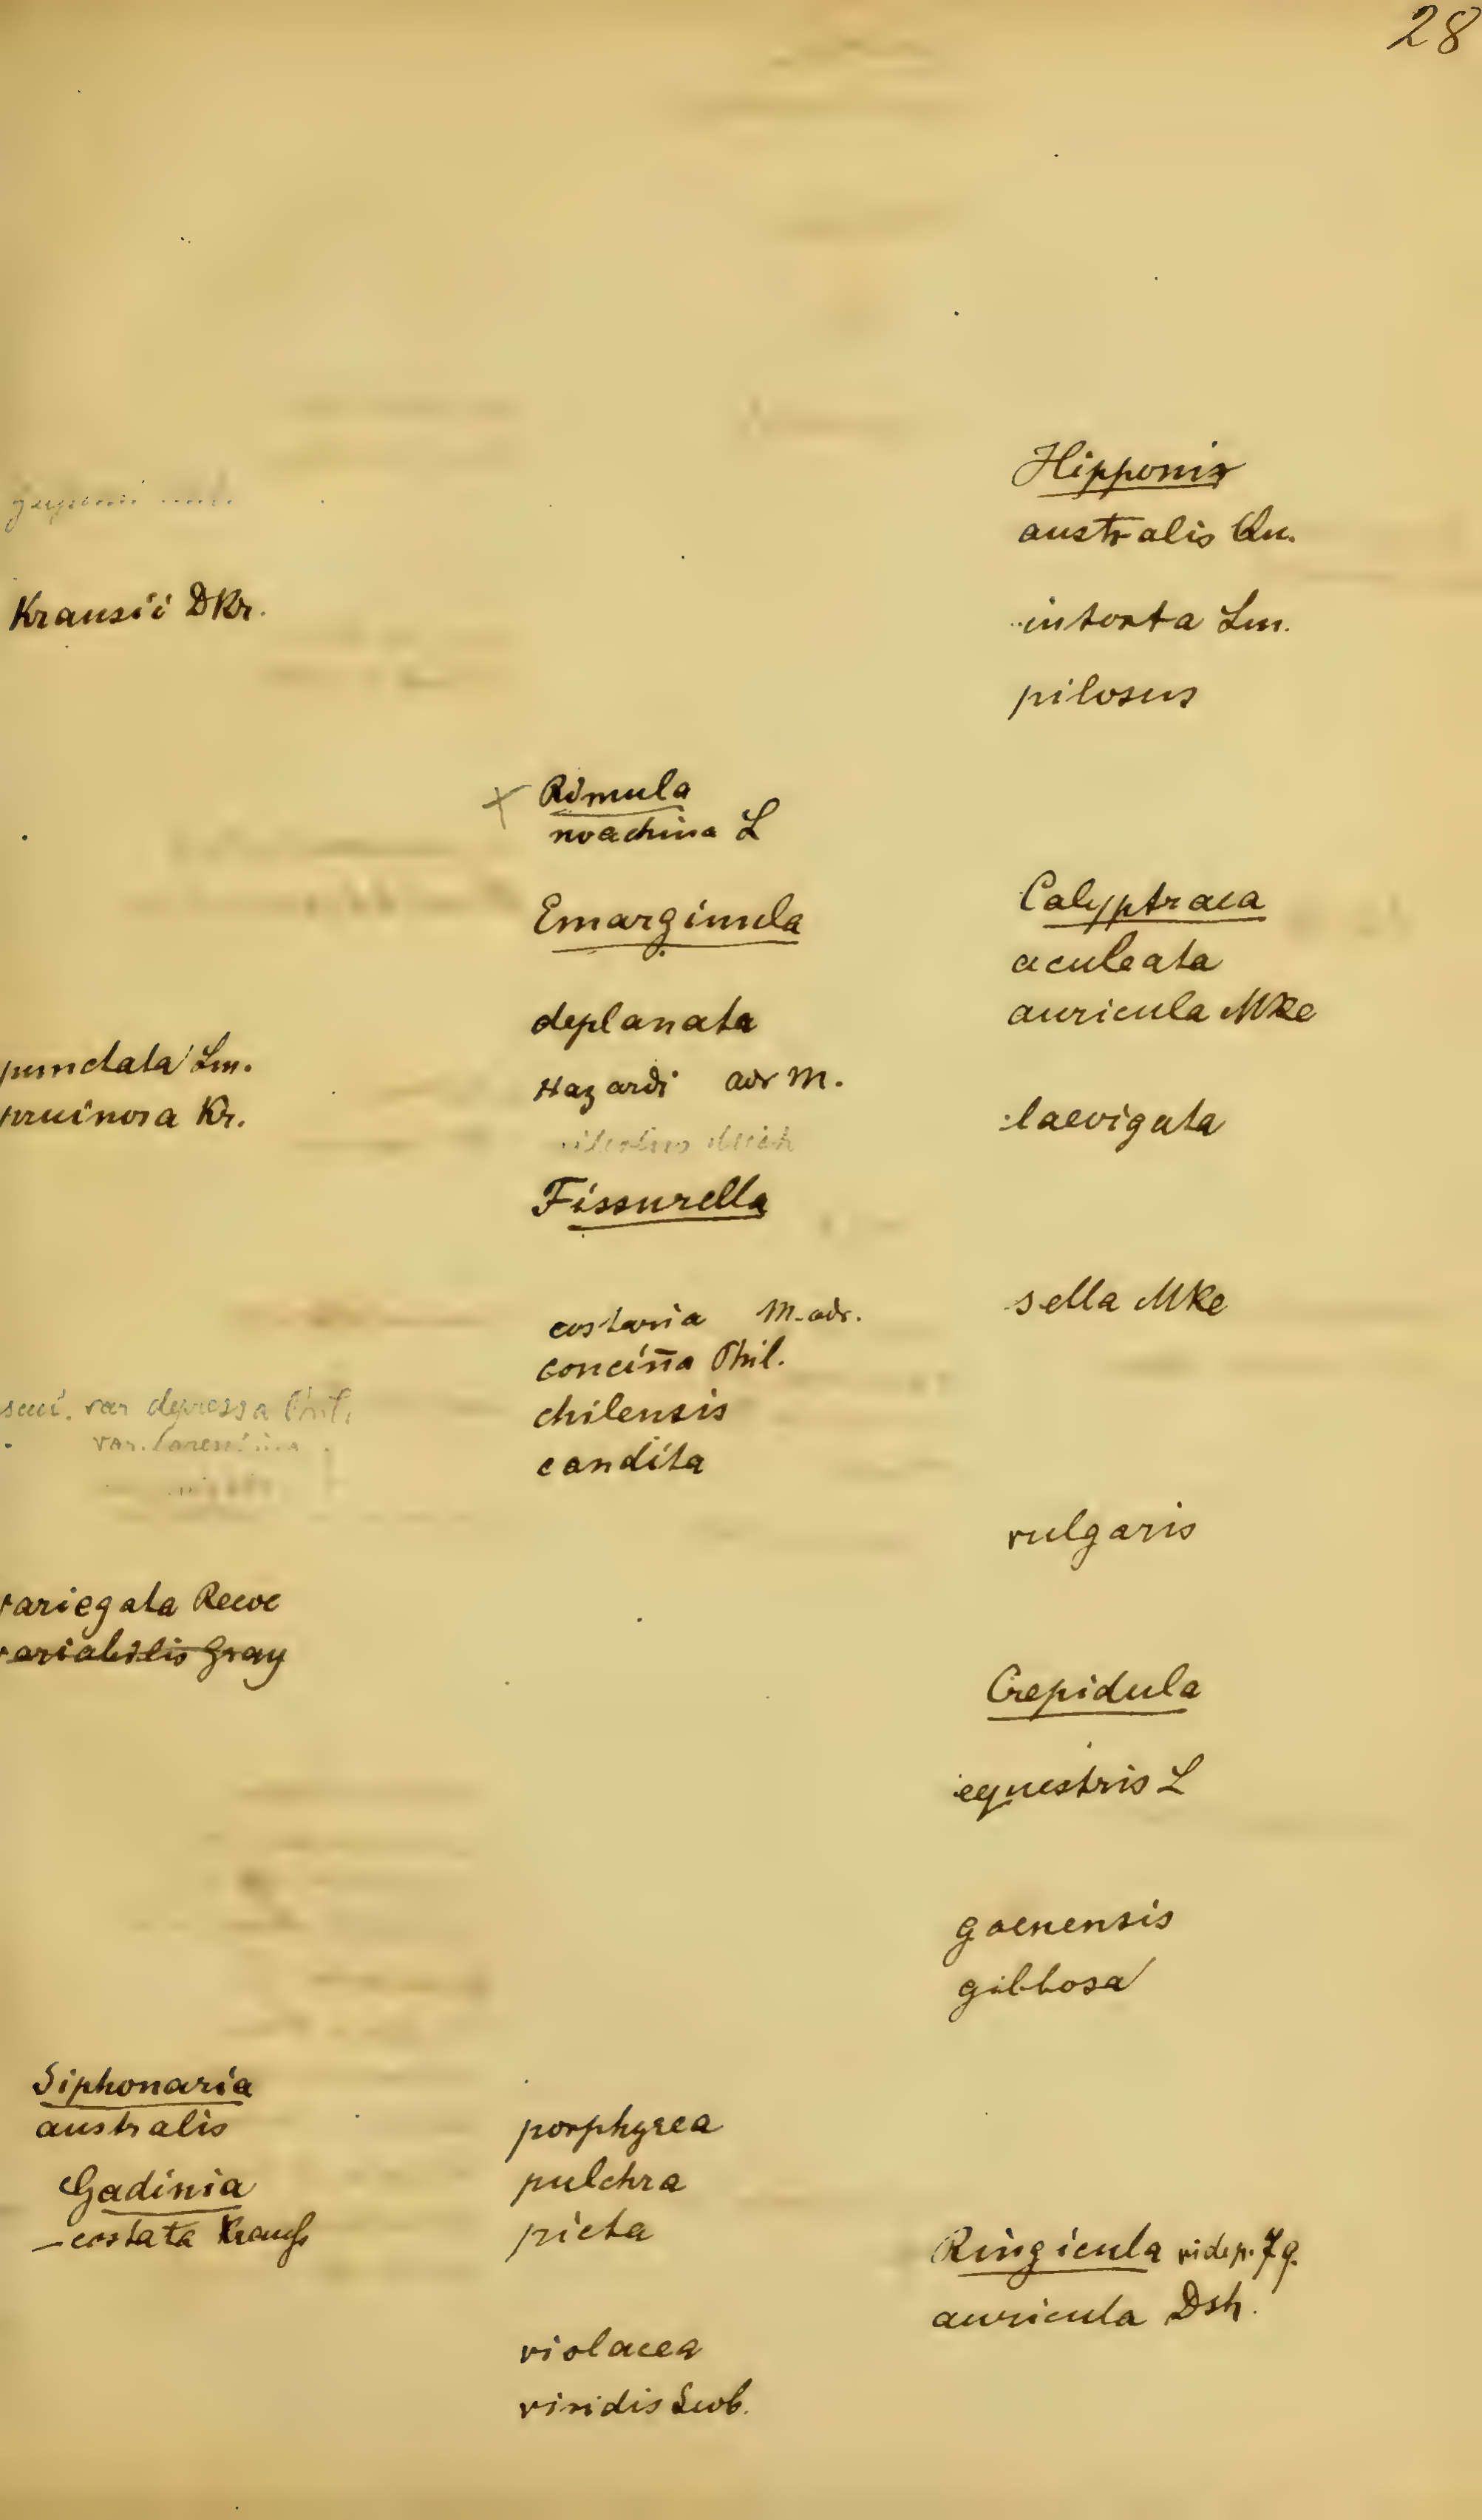 28
Krausii DKr.
punctata Lm.
pruinosa Kr.
var depressa Phil.
variegata Reeve
variabilis Gray
Siphonaria
australis
Gadinia
costata Krauss
Rimula
noachina L
Emarginula
deplanata
Hazardi adr M.
Fissurella
costaria M. adr.
concin̄a Phil.
chilensis
candita
porphyrea
pulchra
picta
violacea
viridis Swb.
Hipponix
australis Qu.
intorta Lm.
pilosus
Calyptraea
aculeata
auricula Mke
laevigata
sella Mke
vulgaris
Crepidula
equestris L
goenensis
gibbosa
Ringicula vide p. 79.
auricula Dsh.